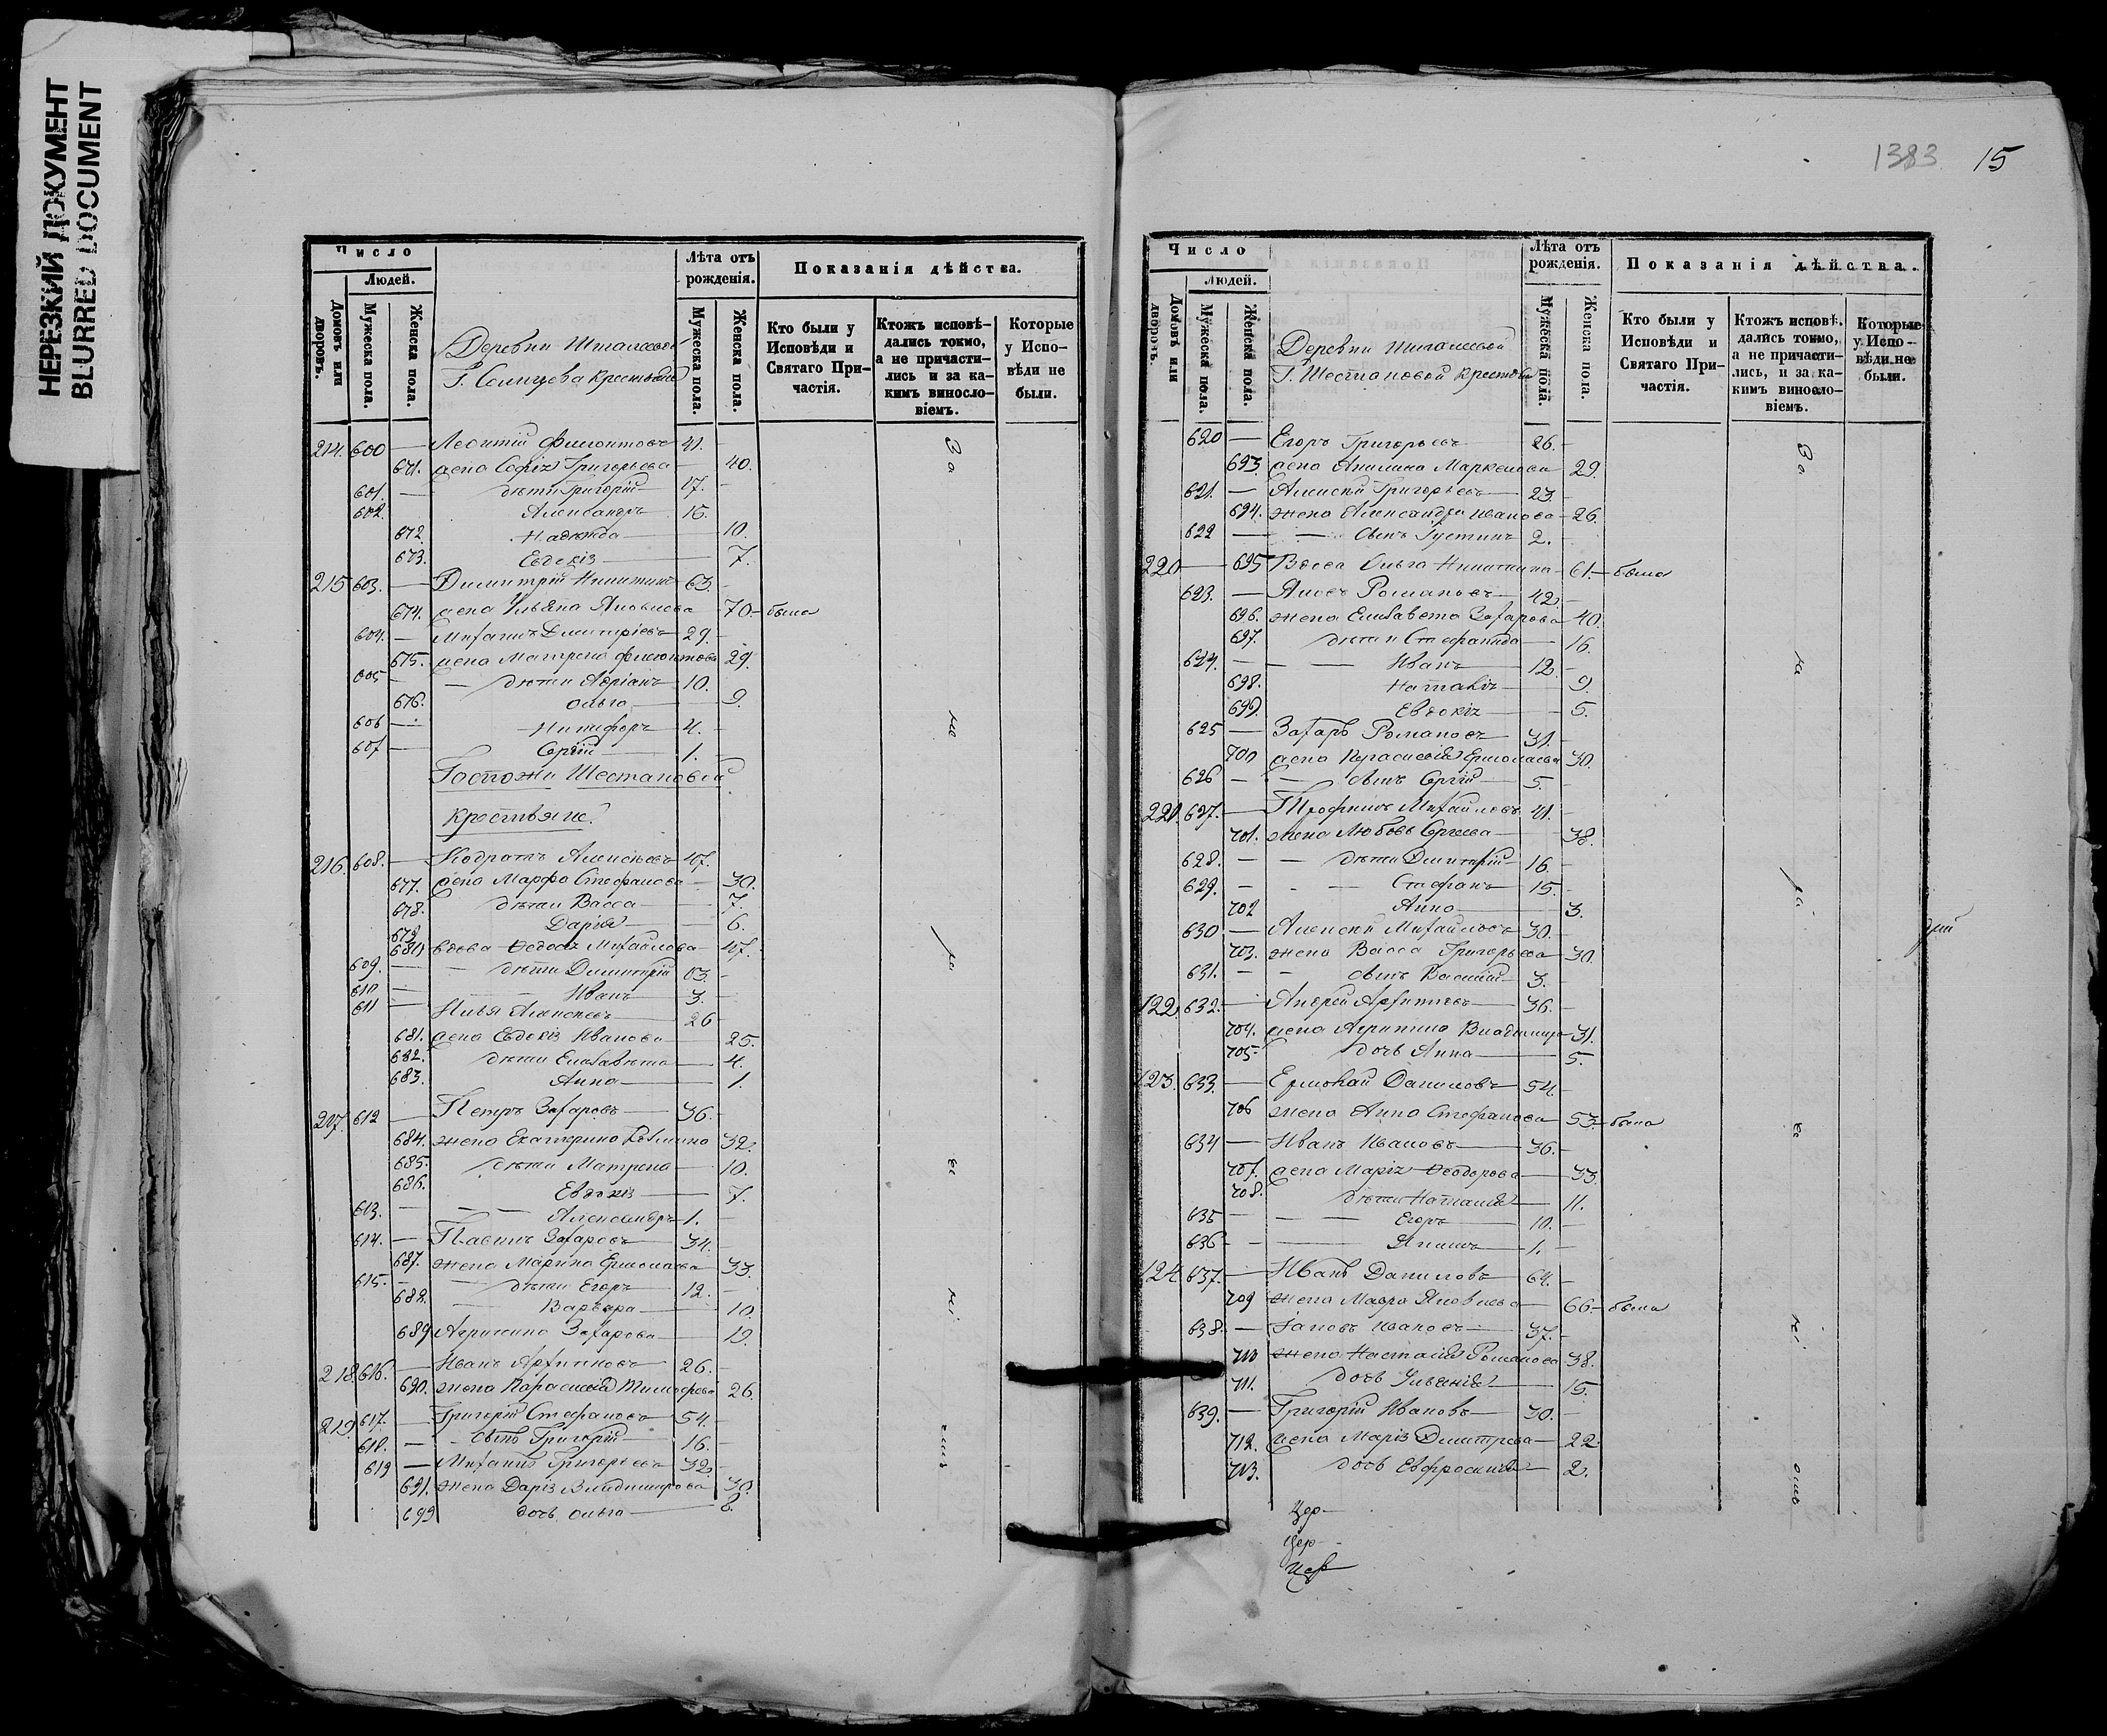 НЕРЕЗКИЙ ДОКУМЕНТ
BLURRED DOCUMENT
Число
Людей.
Домовъ или дворовъ.
Мужеска пола.
Женска пола.
Деревни
Г. Селицева крестьяне
Лѣта отъ рожденія.
Мужеска пола.
Женска пола.
Показанія дѣйства.
Кто были у Исповѣди и Святаго Причастія.
Ктожъ исповѣдались токмо, а не причастились и за какимъ винословіемъ.
Которые у Исповѣди не были.
214. 600 — Леонтій Филиповъ 41.
671. жена Софія Григорьева — 40.
601. — дѣти Григорій 17.
602. Александръ 15.
672. Надежда — 10.
673. Евдокія — 7.
215 603. — Димитрій Никитинъ 63.
674. жена Ульяна Яковлева 70 — была
604. — Михаилъ Димитріевъ 29.
675. жена Матрена 29.
605 — дѣти Адріанъ 10.
676. Ольга 9.
606 — Никифоръ 4.
607 — Сергій 1.
Госпожи Шестаковой
крестьяне.
216. 608. — Кодратъ Алексѣевъ 47.
677. жена Марфа Стефанова — 30.
678. дѣти Васса — 7.
679 Дарія — 6.
680 вдова Ѳедосія Михайлова — 47.
609. — дѣти Димитрій 13.
610 — Иванъ 3.
611 — Илья Алексѣевъ 26
681. жена Евдокія Иванова 25.
682. дѣти Елисавета 4.
683. Анна — 1.
217. 612 — Петръ Захаровъ — 36.
684. жена Екатерина Козмина 32.
685. дѣти Матрена 10.
686. Евдокія — 7.
613. — Александръ 1.
614. — Павелъ Захаровъ 34.
687. жена Марина Ермолаева 33.
615. — дѣти Егоръ 12.
688. Варвара — 10.
689 Агрипина Захарова 19.
218. 616. — Иванъ Архиповъ 26.
690. жена Параскевія Тимофеева 26.
219 617. — Григорій Стефановъ 54.
618. — сынъ Григорій 16.
619 — Михаилъ Григорьевъ 32.
691. жена Дарія Владимирова 30.
692 дочь Ольга — 8.
1383 15
Число
Людей.
Домовъ или дворовъ.
Мужеска пола.
Женска пола.
Деревни
Г. Шестаковой крестьяне
Лѣта отъ рожденія.
Мужеска пола.
Женска пола
Показанія дѣйства.
Кто были у Исповѣди и Святаго Причастія.
Ктожъ исповѣдались токмо, а не причастились, и за какимъ винословіемъ.
Которые у Исповѣди не были.
620 — Егоръ Григорьевъ 26.
693. жена Акилина Маркелова 29.
621. — Алексѣй Григорьевъ 23.
694. жена Александра Иванова 26.
622 — сынъ Густинъ 2.
220 — 695 Вдова Ольга Никитина 61. — была
623. — Яковъ Романовъ 42.
696. жена Елисавета Захарова 40.
697. дѣти Стефанида 16.
624. — Иванъ 12.
698. Наталія 9.
699. Евдокія 5.
625 — Захаръ Романовъ 31.
700 жена Параскевія Ермолаева 30.
626 — сынъ Сергій 5.
221. 627. — Трофимъ Михайловъ 41.
701. жена Любовь Сергеева 38.
628. — дѣти Димитрій 16.
629. — Стефанъ 15.
702 Анна 3.
630 — Алексѣй Михайловъ 30.
703. жена Васса Григорьева 30.
631. — сынъ Василій 3.
122. 632. — Андрей Архиповъ 36.
704. жена Агрипина Владимир 31.
705. дочь Анна 5.
123. 633. — Ермолай Даниловъ 54.
706 жена Анна Стефанова 53 — была
634 — Иванъ Ивановъ 36.
707. жена Марія Ѳеодорова 33.
708. дѣти Наталія 11.
635 — Егоръ 10.
636 — Якимъ 1.
124. 637. — Иванъ Даниловъ 64.
709 жена Мавра Яковлева 66. — была
638. — Іаковъ Ивановъ 37.
710 жена Наталія Романова 38.
711. дочь Уліанія 15.
639. — Григорій Ивановъ 30.
712. жена Марія Дмитрева 22.
713. дочь Евфросинія 2.
Цер
Цер
Цер